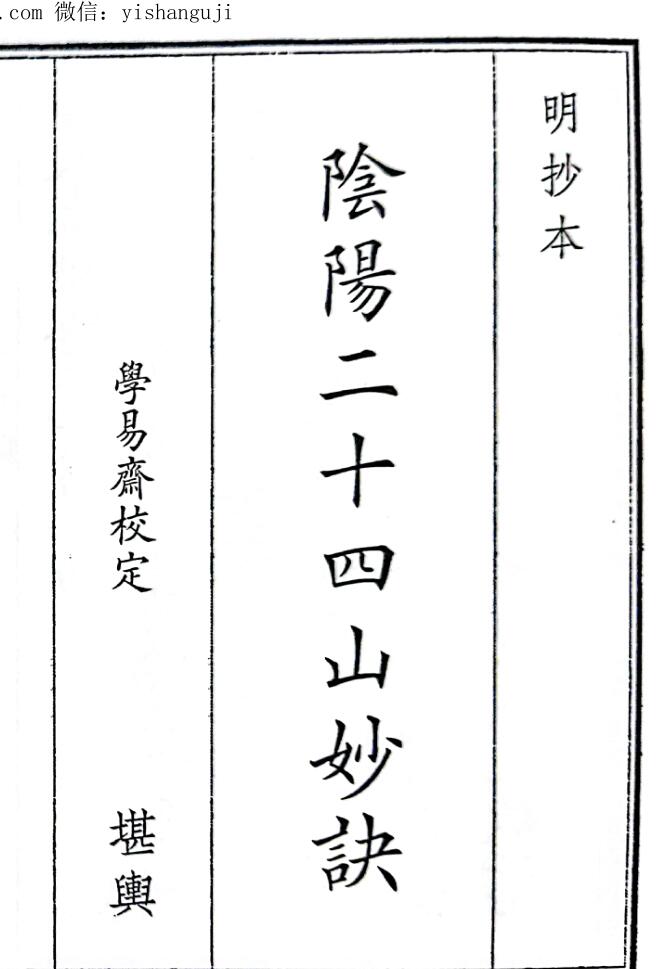 .com 微信：yishanguji
明抄本
陰陽二十四山妙訣
學易齋校定
堪輿